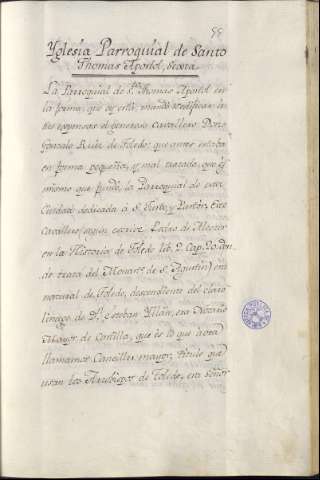 Yglesia Parroquial de Santo
Thomas Apostol, Sexta.
La Parroquial de S.to Thomas Apostol en
la forma, que oy està, mandò reedificar la
à expensas el generoso Cavallero Don
Gonzalo Ruiz de Toledo; que antes estaba
en forma pequeña, y mal tratada, que es
mismo que fundò, la Parroquial de esta
Ciudad dedicada à S. Justo, y Pastor. Este
Cavallero, segun escrive Pedro de Alcocer
en la Historia de Toledo lib. 2. Cap. 20. don
de trata del Monast.o de S. Agustin) era
natural de Toledo, descendiente del claro
linage de D.n Esteban Yllán, era Notario
Mayor de Castilla, que es lo que aora
llamamos Canciller mayor, titulo que
usan los Arzobispos de Toledo, este señor